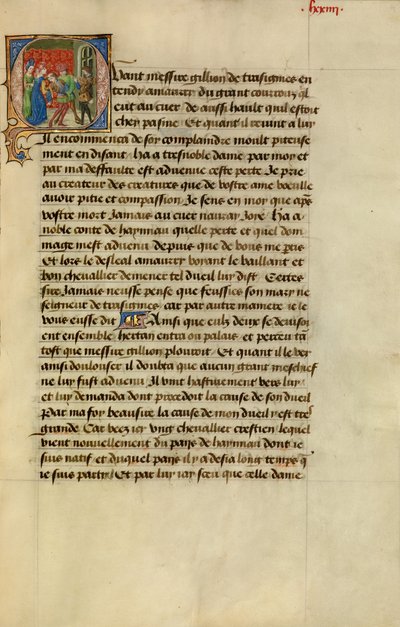 lxxiiii
Quant messire gillion de trasignies en
tendy amaurry du grant courroux ql
eut au cuer de aussi hault quil estoit
chey pasme Et quant il revint a luy
Il encommenca de soy complaindre moult piteuse
ment en disant ha a tresnoble dame par moy et
par ma deffaulte est advenue ceste perte Je prie
au createur des creatures que de vostre ame voeulle
avoir pitie et compassion Je sens en moy que aps
vostre mort Jamais au cuer nauray Joye ha a
noble conte de haynnau quelle perte et quel dom
mage mest advenu depuis que de vous me partis
Et lors le desleal amaury voyant le vaillant et
bon chevallier demener tel dueil luy dist Certes
sire Jamais neusse pense que feussies son mary ne
seigneur de trasignies car par autre maniere je le
vous eusse dit Ainsi que eulz deux se devisoi
ent ensemble hertan entra ou palais et perceu ta
tost que messire gillion plouroit Et quant il le vey
ainsi doulouser il doubta que aucun grant meschief
ne luy fust advenu Il vint hastivement vers luy
et luy demanda dont procedoit la cause de son dueil
Par ma foy beau sire la cause de mon dueil y est tres
grande Car veez icy ung chevallier crestien lequel
vient nouvellement du pays de haynnau dont je
suis natif et duquel pays il y a desia long temps q
je suis party Et par luy jay sceu que celle dame